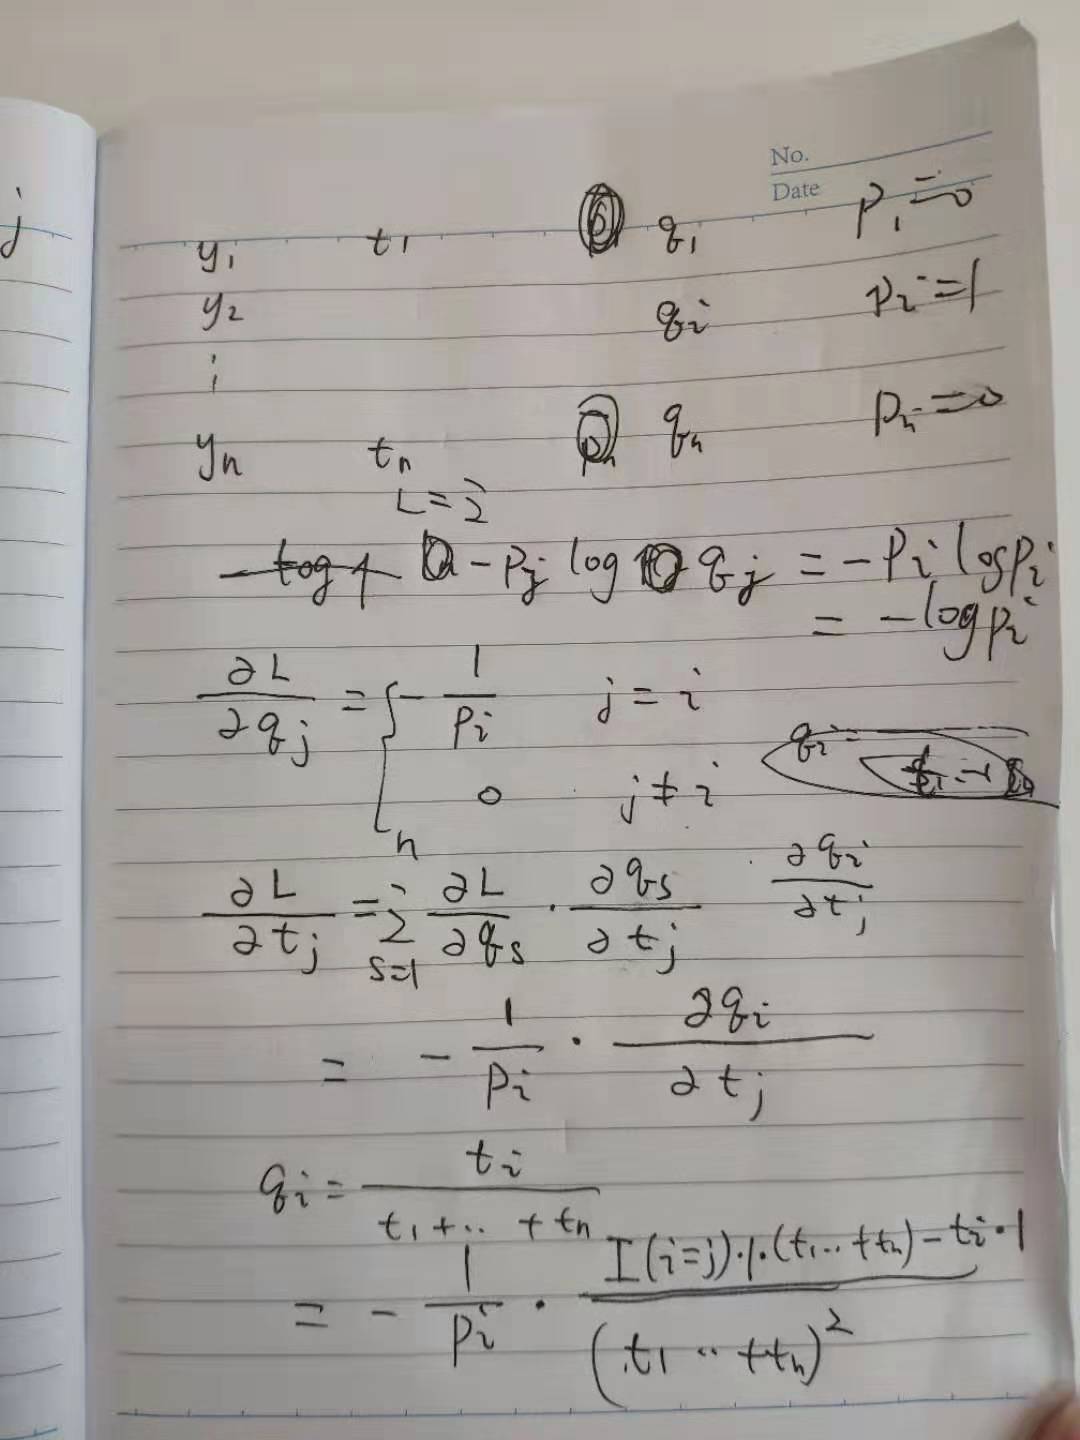 No.
Date
j
y₁ t₁ q₁ p₁=0
y₂ qᵢ pᵢ=1
yₙ tₙ pₙ qₙ pₙ=0
L=Σ
-log - pⱼ log qⱼ = -pᵢ log pᵢ
= -log pᵢ
∂L/∂qⱼ = { -1/pᵢ j=i
0 j≠i
qᵢ =
∂L/∂tⱼ = Σₛ₌₁ⁿ ∂L/∂qₛ · ∂qₛ/∂tⱼ ∂qᵢ/∂tⱼ
= -1/pᵢ · ∂qᵢ/∂tⱼ
qᵢ = tᵢ/(t₁+..+tₙ)
= -1/pᵢ · (I(i=j)·1·(t₁..+tₙ)-tᵢ·1)/(t₁..+tₙ)²